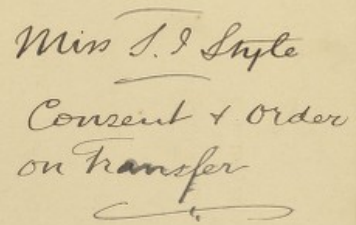 Miss S. I Style
Consent & Order
on Transfer